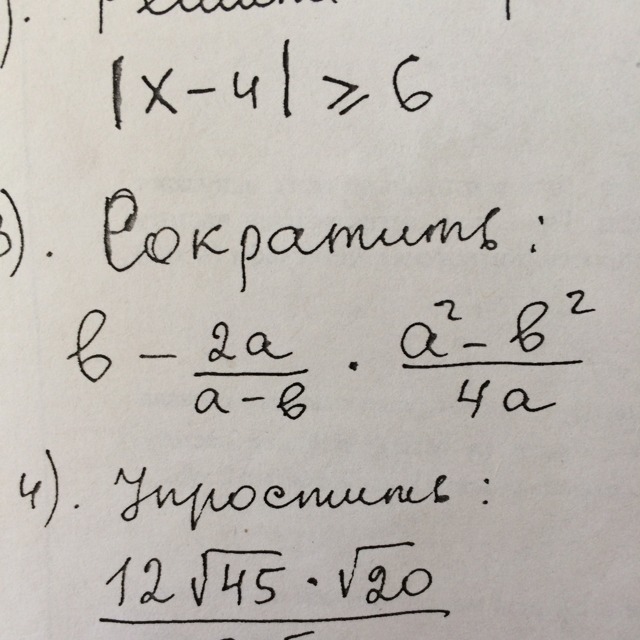 |x-4| ≥ 6
3). Сократить:
в - 2a/(a-в) · (a²-в²)/4a
4). Упростить:
12√45 · √20